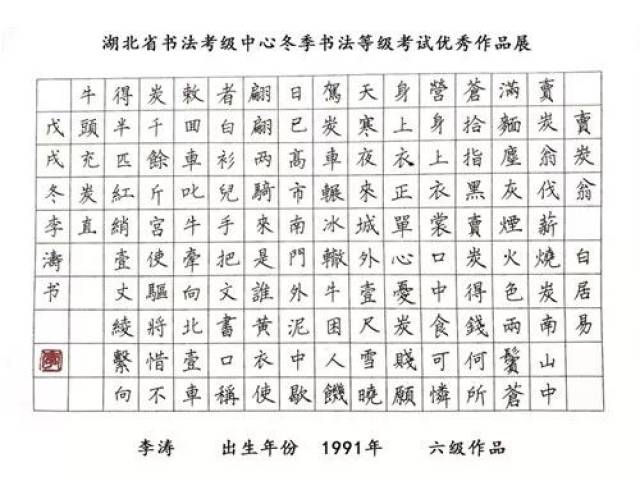 湖北省书法考级中心冬季书法等级考试优秀作品展
賣炭翁 白居易
賣炭翁伐薪燒炭南山中
滿麵塵灰煙火色兩鬢蒼
蒼拾指黑賣炭得錢何所
營身上衣裳口中食可憐
身上衣正單心憂炭賤願
天寒夜來城外壹尺雪曉
駕炭車輾冰轍牛困人饑
日已高市南門外泥中歇
翩翩两騎來是誰黃衣使
者白衫兒手把文書口稱
敕回車叱牛牽向北壹車
炭千餘斤宮使驅將惜不
得半匹紅綃壹丈綾繫向
牛頭充炭直
戊戌冬李濤书
李涛 出生年份 1991年 六级作品